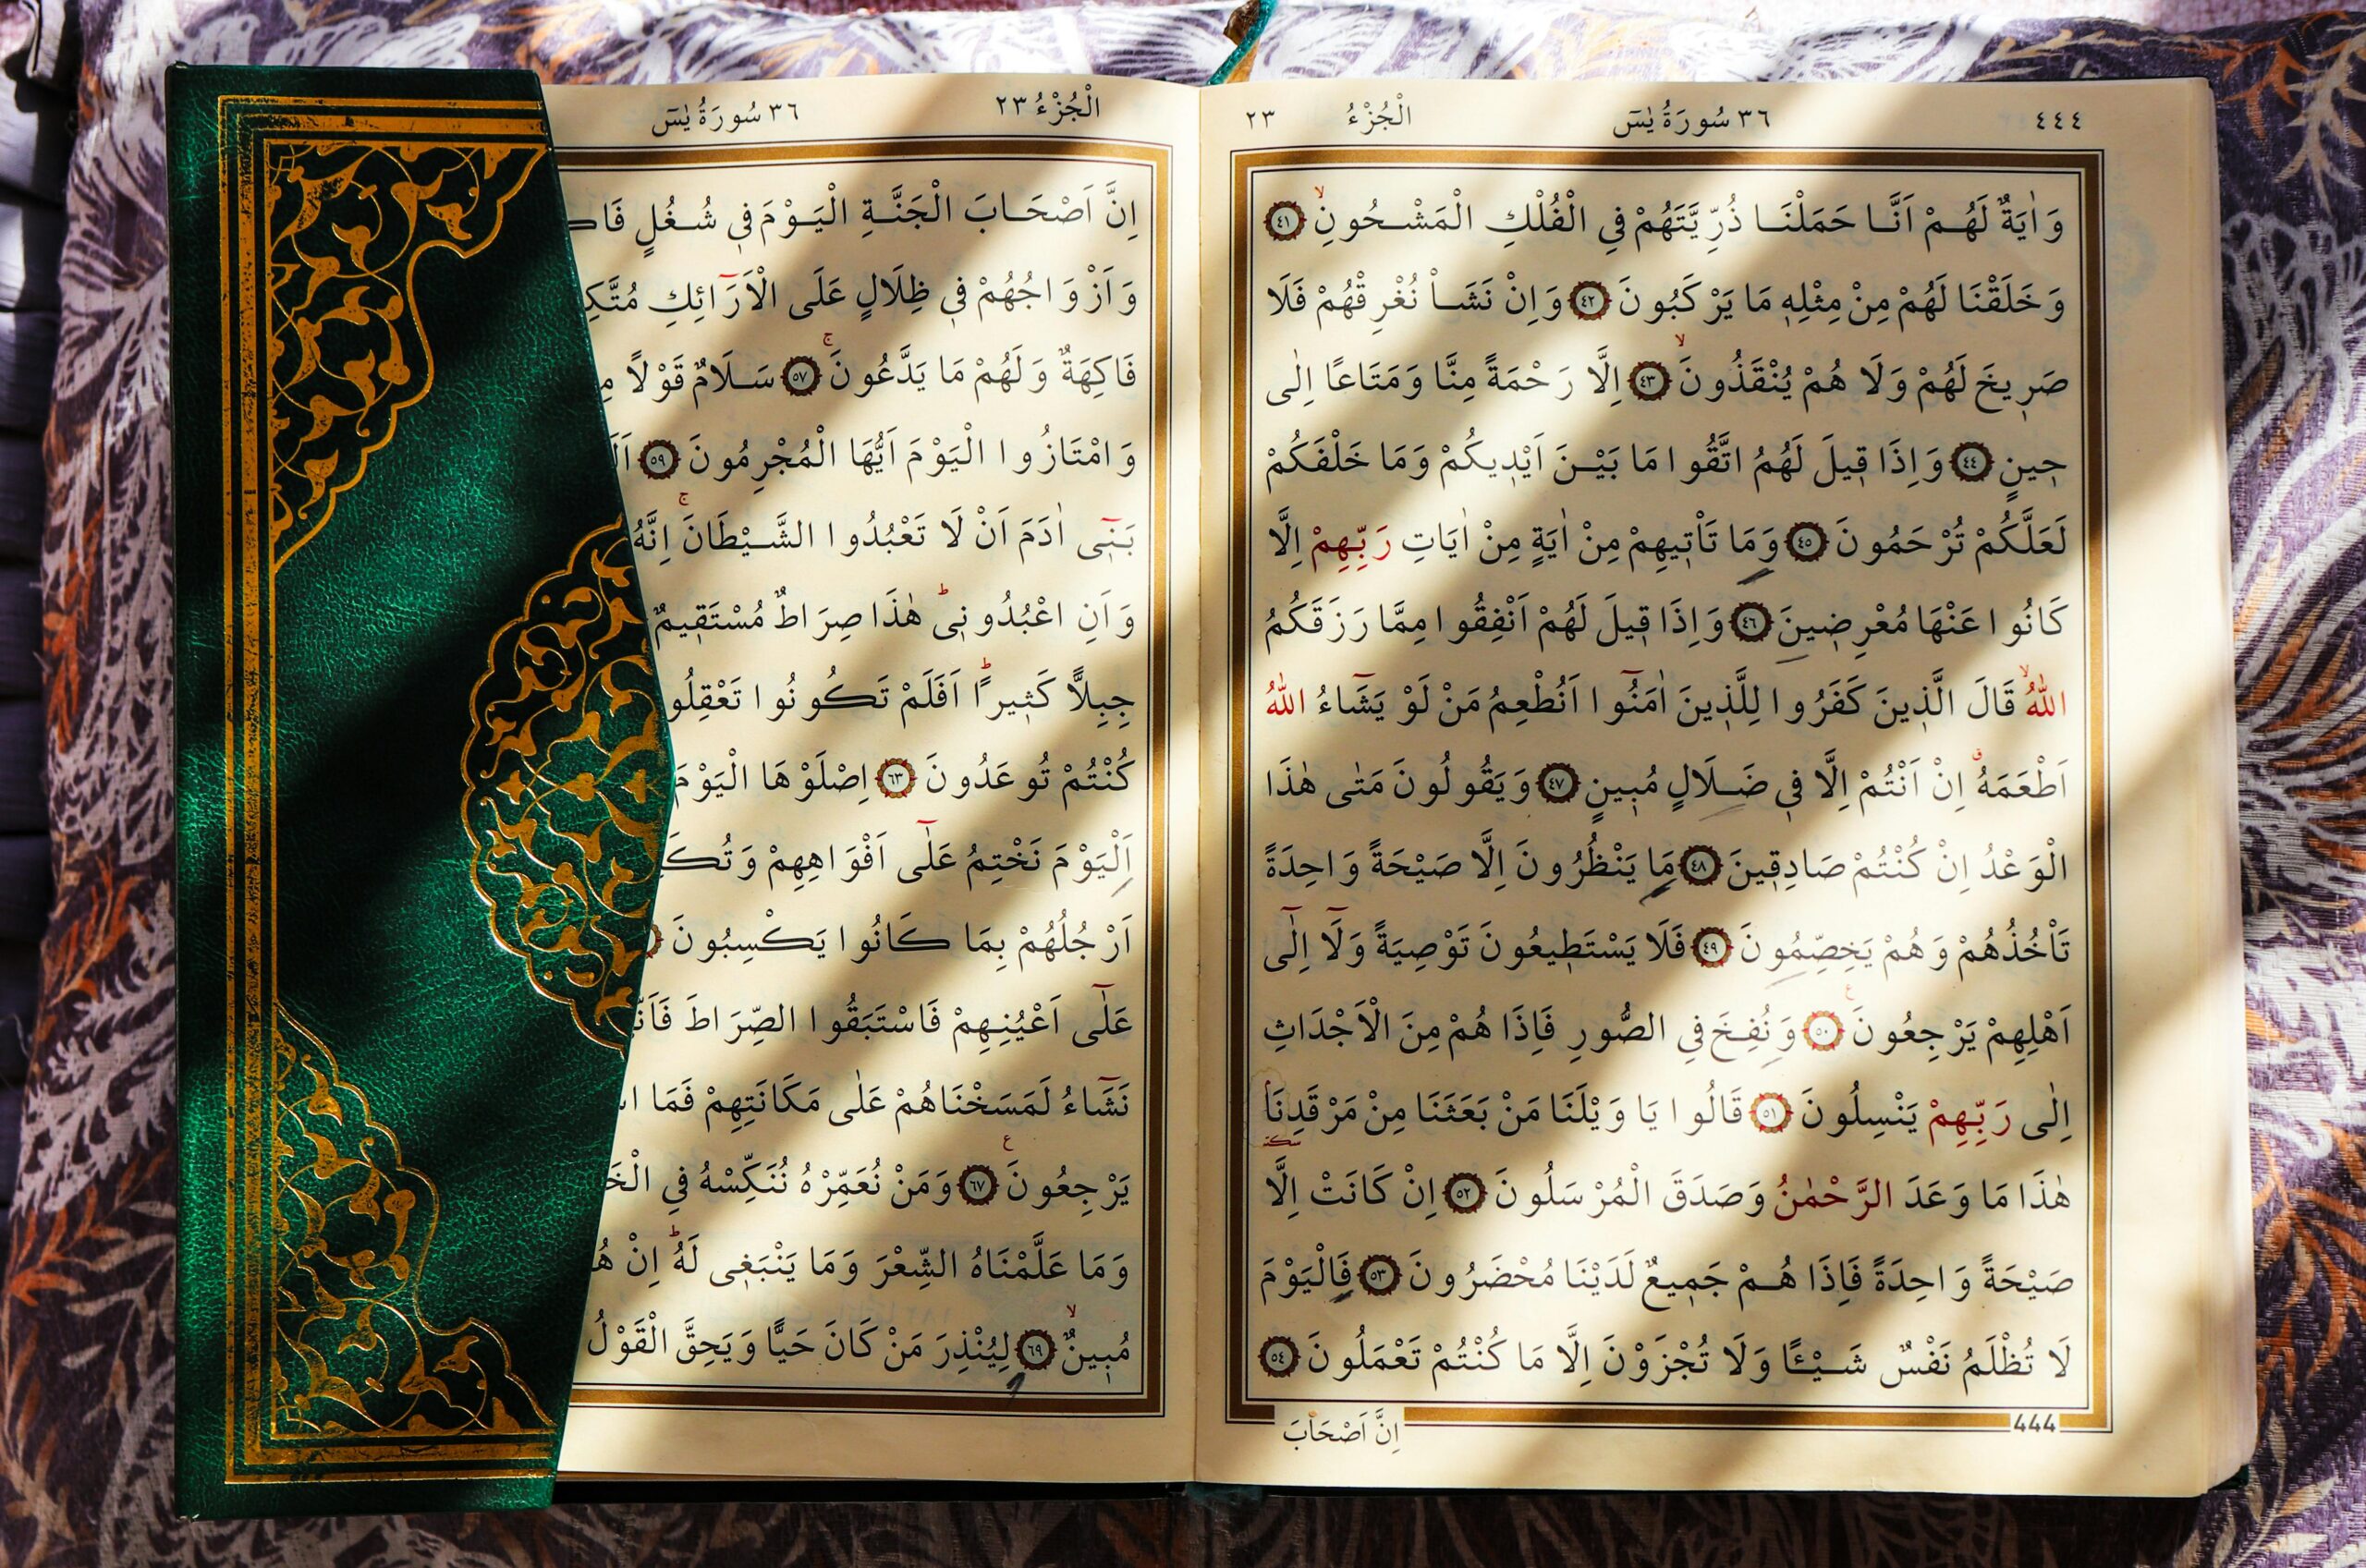 ٤٤٤ ٣٦ سُورَةُ يٰسٓ الْجُزْءُ ٢٣
وَاٰيَةٌ لَهُمْ اَنَّا حَمَلْنَا ذُرِّيَّتَهُمْ فِي الْفُلْكِ الْمَشْحُونِۙ ﴿٤١﴾
وَخَلَقْنَا لَهُمْ مِنْ مِثْلِه۪ مَا يَرْكَبُونَ ﴿٤٢﴾ وَاِنْ نَشَأْ نُغْرِقْهُمْ فَلَا
صَر۪يخَ لَهُمْ وَلَا هُمْ يُنْقَذُونَۙ ﴿٤٣﴾ اِلَّا رَحْمَةً مِنَّا وَمَتَاعًا اِلٰى
ح۪ينٍ ﴿٤٤﴾ وَاِذَا ق۪يلَ لَهُمُ اتَّقُوا مَا بَيْنَ اَيْد۪يكُمْ وَمَا خَلْفَكُمْ
لَعَلَّكُمْ تُرْحَمُونَ ﴿٤٥﴾ وَمَا تَأْت۪يهِمْ مِنْ اٰيَةٍ مِنْ اٰيَاتِ رَبِّهِمْ اِلَّا
كَانُوا عَنْهَا مُعْرِض۪ينَ ﴿٤٦﴾ وَاِذَا ق۪يلَ لَهُمْ اَنْفِقُوا مِمَّا رَزَقَكُمُ
اللّٰهُۙ قَالَ الَّذ۪ينَ كَفَرُوا لِلَّذ۪ينَ اٰمَنُٓوا اَنُطْعِمُ مَنْ لَوْ يَشَٓاءُ اللّٰهُ
اَطْعَمَهُۗ اِنْ اَنْتُمْ اِلَّا ف۪ي ضَلَالٍ مُب۪ينٍ ﴿٤٧﴾ وَيَقُولُونَ مَتٰى هٰذَا
الْوَعْدُ اِنْ كُنْتُمْ صَادِق۪ينَ ﴿٤٨﴾ مَا يَنْظُرُونَ اِلَّا صَيْحَةً وَاحِدَةً
تَأْخُذُهُمْ وَهُمْ يَخِصِّمُونَ ﴿٤٩﴾ فَلَا يَسْتَط۪يعُونَ تَوْصِيَةً وَلَٓا اِلٰٓى
اَهْلِهِمْ يَرْجِعُونَ ﴿٥٠﴾ وَنُفِخَ فِي الصُّورِ فَاِذَا هُمْ مِنَ الْاَجْدَاثِ
اِلٰى رَبِّهِمْ يَنْسِلُونَ ﴿٥١﴾ قَالُوا يَا وَيْلَنَا مَنْ بَعَثَنَا مِنْ مَرْقَدِنَا
هٰذَا مَا وَعَدَ الرَّحْمٰنُ وَصَدَقَ الْمُرْسَلُونَ ﴿٥٢﴾ اِنْ كَانَتْ اِلَّا
صَيْحَةً وَاحِدَةً فَاِذَا هُمْ جَم۪يعٌ لَدَيْنَا مُحْضَرُونَ ﴿٥٣﴾ فَالْيَوْمَ
لَا تُظْلَمُ نَفْسٌ شَيْـًٔا وَلَا تُجْزَوْنَ اِلَّا مَا كُنْتُمْ تَعْمَلُونَ ﴿٥٤﴾
444
اِنَّ اَصْحَابَ
الْجُزْءُ ٢٣ ٣٦ سُورَةُ يٰسٓ
اِنَّ اَصْحَابَ الْجَنَّةِ الْيَوْمَ ف۪ي شُغُلٍ
وَاَزْوَاجُهُمْ ف۪ي ظِلَالٍ عَلَى الْاَرَٓائِكِ
فَاكِهَةٌ وَلَهُمْ مَا يَدَّعُونَۚ ﴿٥٧﴾ سَلَامٌ قَوْلًا
وَامْتَازُوا الْيَوْمَ اَيُّهَا الْمُجْرِمُونَ ﴿٥٩﴾
بَن۪ٓي اٰدَمَ اَنْ لَا تَعْبُدُوا الشَّيْطَانَۚ اِنَّهُ
وَاَنِ اعْبُدُون۪يۜ هٰذَا صِرَاطٌ مُسْتَق۪يمٌ
جِبِلًّا كَث۪يرًاۜ اَفَلَمْ تَكُونُوا
كُنْتُمْ تُوعَدُونَ ﴿٦٣﴾ اِصْلَوْهَا الْيَوْمَ
اَلْيَوْمَ نَخْتِمُ عَلٰٓى اَفْوَاهِهِمْ
اَرْجُلُهُمْ بِمَا كَانُوا يَكْسِبُونَ
عَلٰٓى اَعْيُنِهِمْ فَاسْتَبَقُوا الصِّرَاطَ
نَشَٓاءُ لَمَسَخْنَاهُمْ عَلٰى مَكَانَتِهِمْ فَمَا
يَرْجِعُونَ ﴿٦٧﴾ وَمَنْ نُعَمِّرْهُ نُنَكِّسْهُ فِي
وَمَا عَلَّمْنَاهُ الشِّعْرَ وَمَا يَنْبَغ۪ي لَهُۜ اِنْ
مُب۪ينٌۙ ﴿٦٩﴾ لِيُنْذِرَ مَنْ كَانَ حَيًّا وَيَحِقَّ الْقَوْلُ